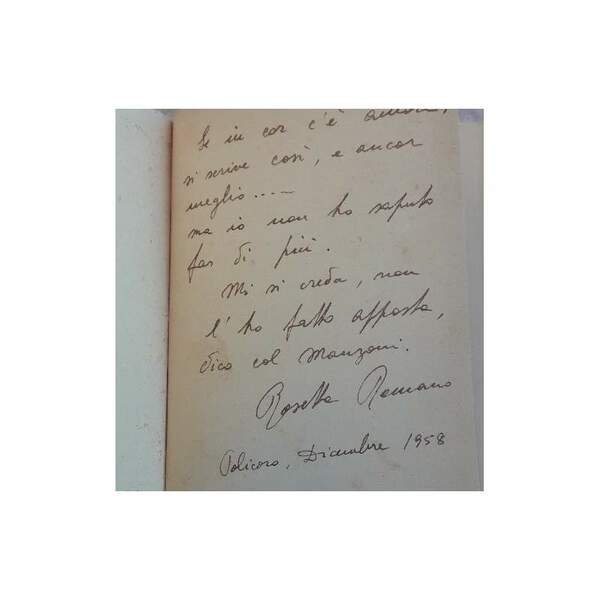 Se in cor c'è amore,
si scrive così, e ancor
meglio....
ma io non ho saputo
far di più.
Mi si creda, non
l'ho fatto apposta,
dico col Manzoni.
Rosetta Romano
Policoro, Dicembre 1958